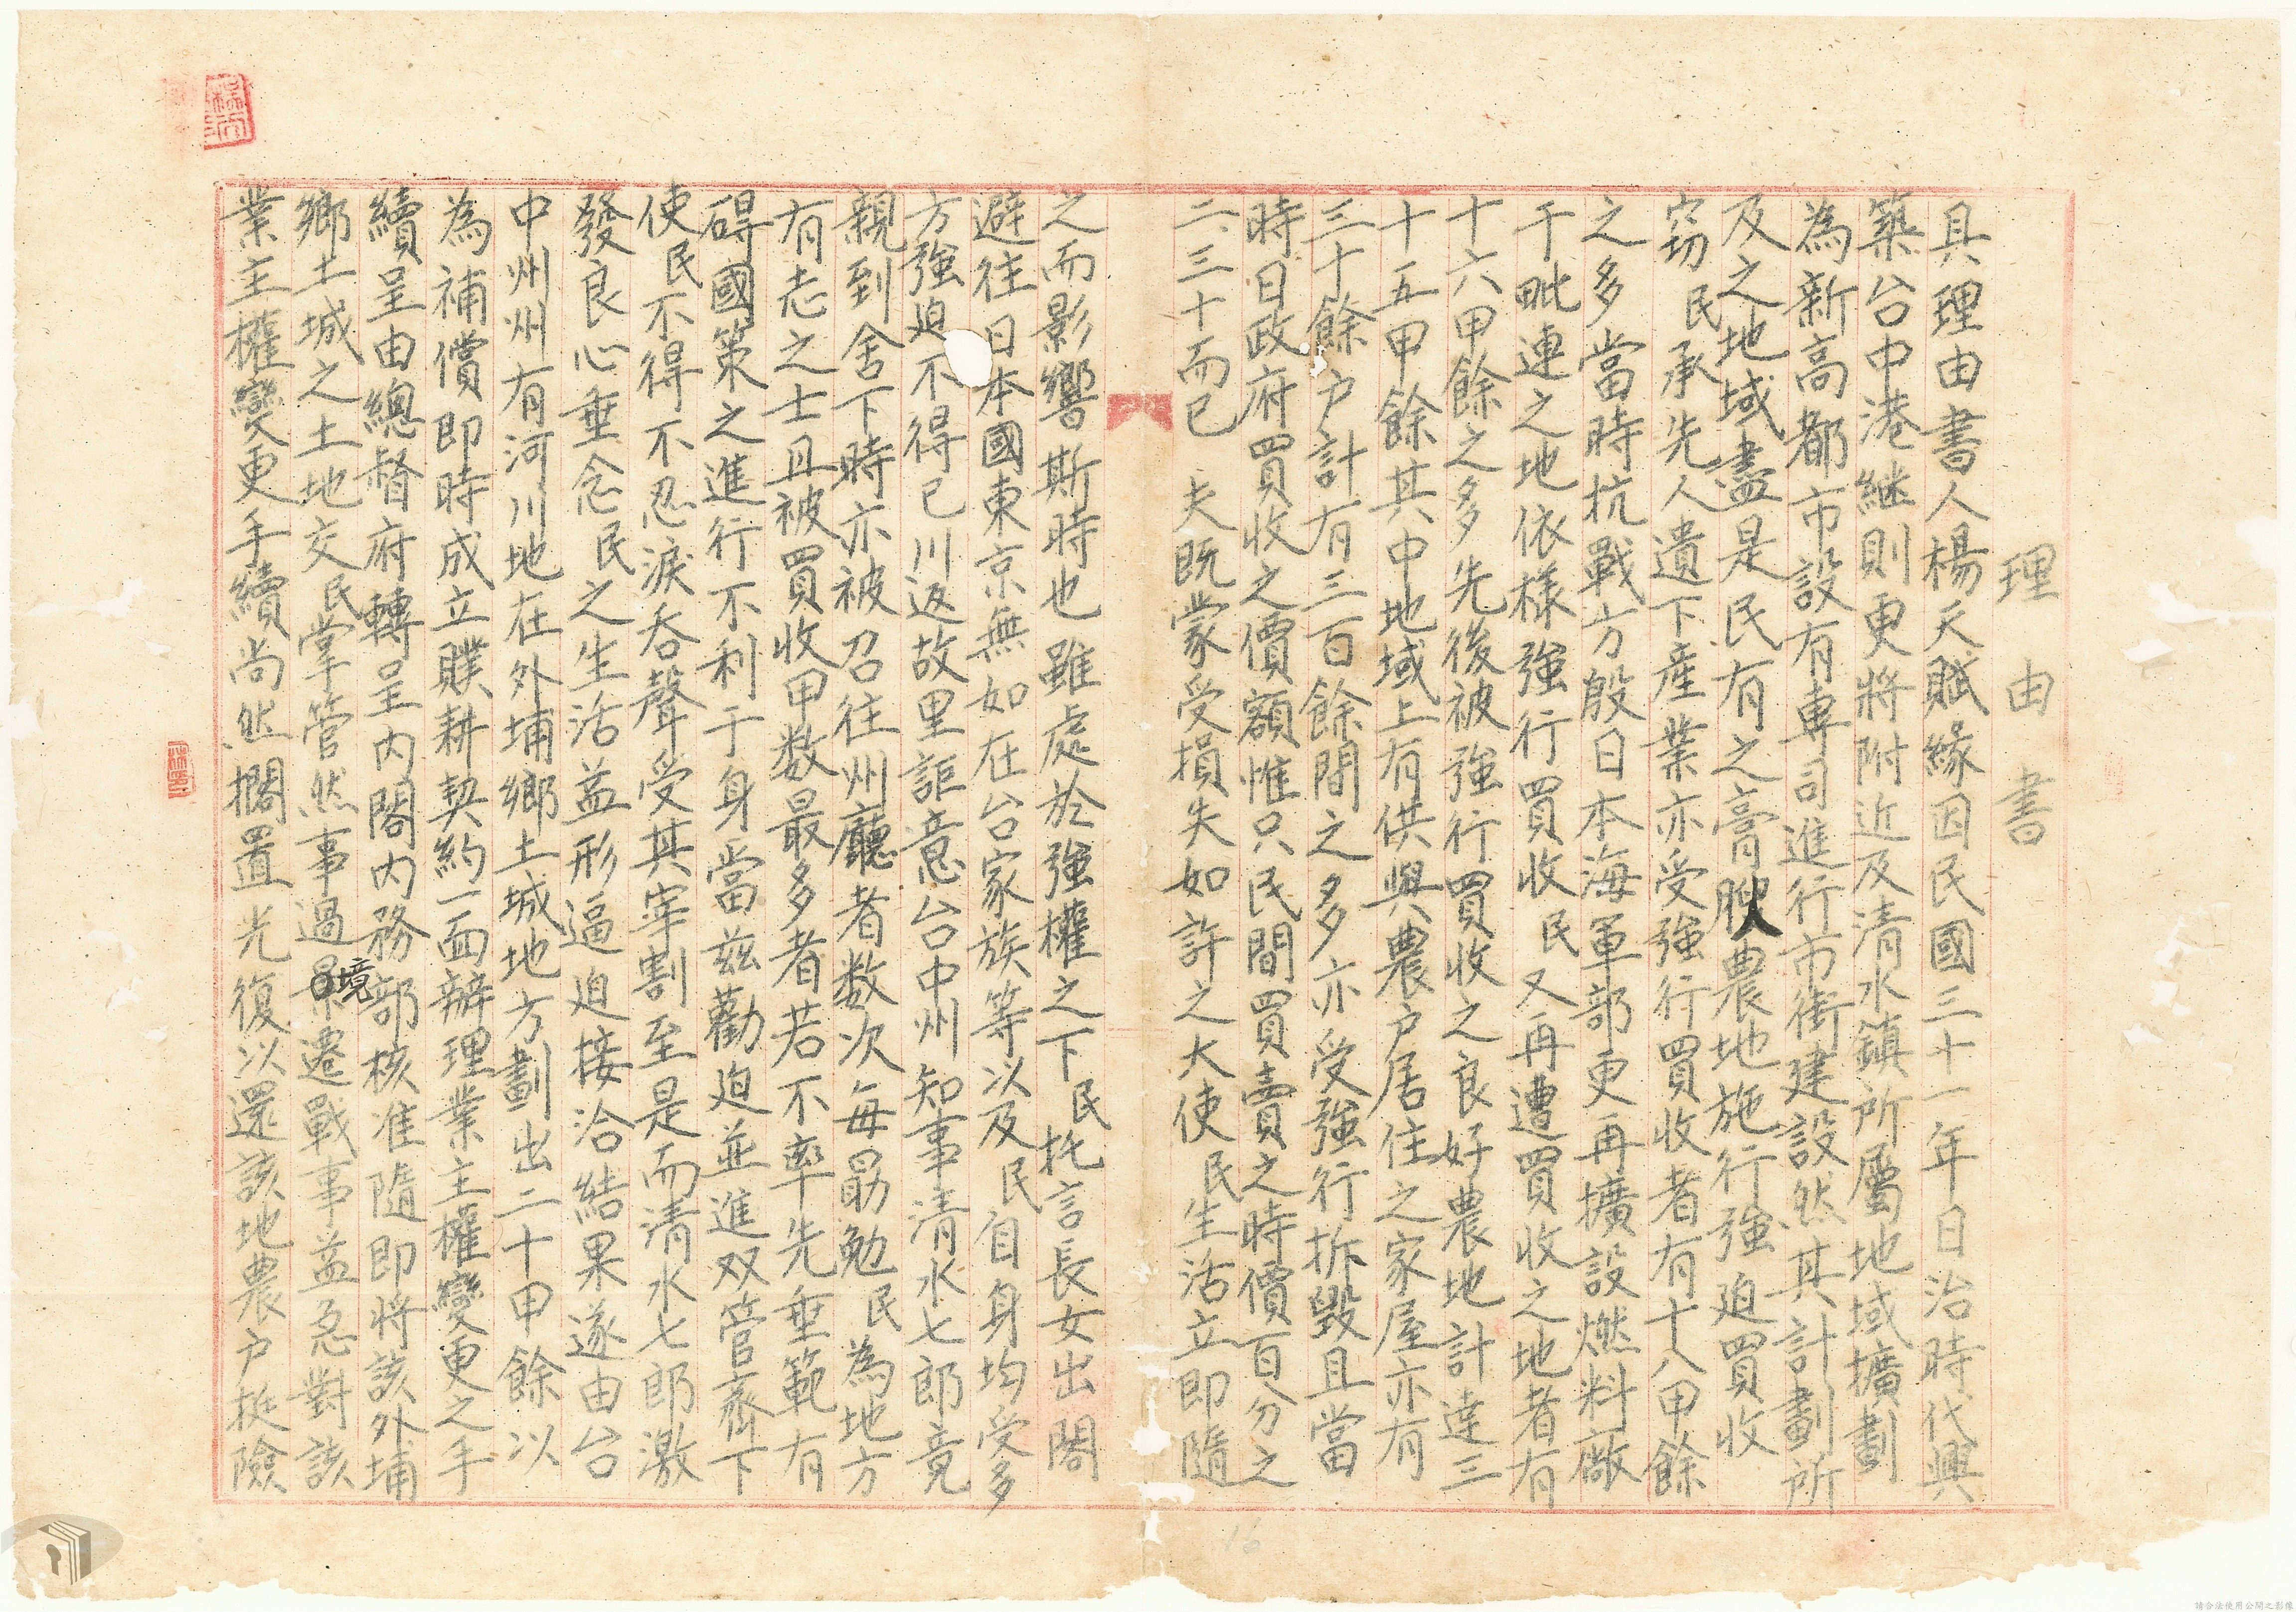 理由書
具理由書人楊天賦緣因民國三十一年日治時代興
築台中港繼則更將附近及清水鎮所屬地域擴劃
為新高都市設有專司進行市街建設然其計劃所
及之地域盡是民有之膏腴農地施行強迫買收
窃民承先人遺下產業亦受強行買收者有十八甲餘
之多當時抗戰方殷日本海軍部更再擴設燃料廠
于毗連之地依樣強行買收民又再遭買收之地者有
十六甲餘之多先後被強行買收之良好農地計達三
十五甲餘其中地域上有供與農户居住之家屋亦有
三十餘户計有三百餘間之多亦受強行拆毀且當
時日政府買收之價額惟只民間買賣之時價百分之
二、三十而已 夫既蒙受損失如許之大使民生活立即隨
之而影響斯時也雖處於強權之下民托言長女出閣
避往日本國東京無如在台家族等以及民自身均受多
方強迫不得已川返故里詎意台中州知事清水七郎竟
親到舍下時亦被召往州廳者数次每勗勉民為地方
有志之士且被買收甲数最多者若不率先垂範有
碍國策之進行不利于身當兹勸迫並進双管齊下
使民不得不忍淚吞聲受其宰割至是而清水七郎激
發良心垂念民之生活益形逼迫接洽結果遂由台
中州州有河川地在外埔鄉土城地方劃出二十甲餘以
為補償即時成立贌耕契約一面辦理業主權變更之手
續呈由總督府轉呈内閣内務部核准隨即將該外埔
鄉土城之土地交民掌管然事過境遷戰事益急對該
業主權變更手續尚然擱置光復以還該地農户挺險
16
請合法使用公開之影像